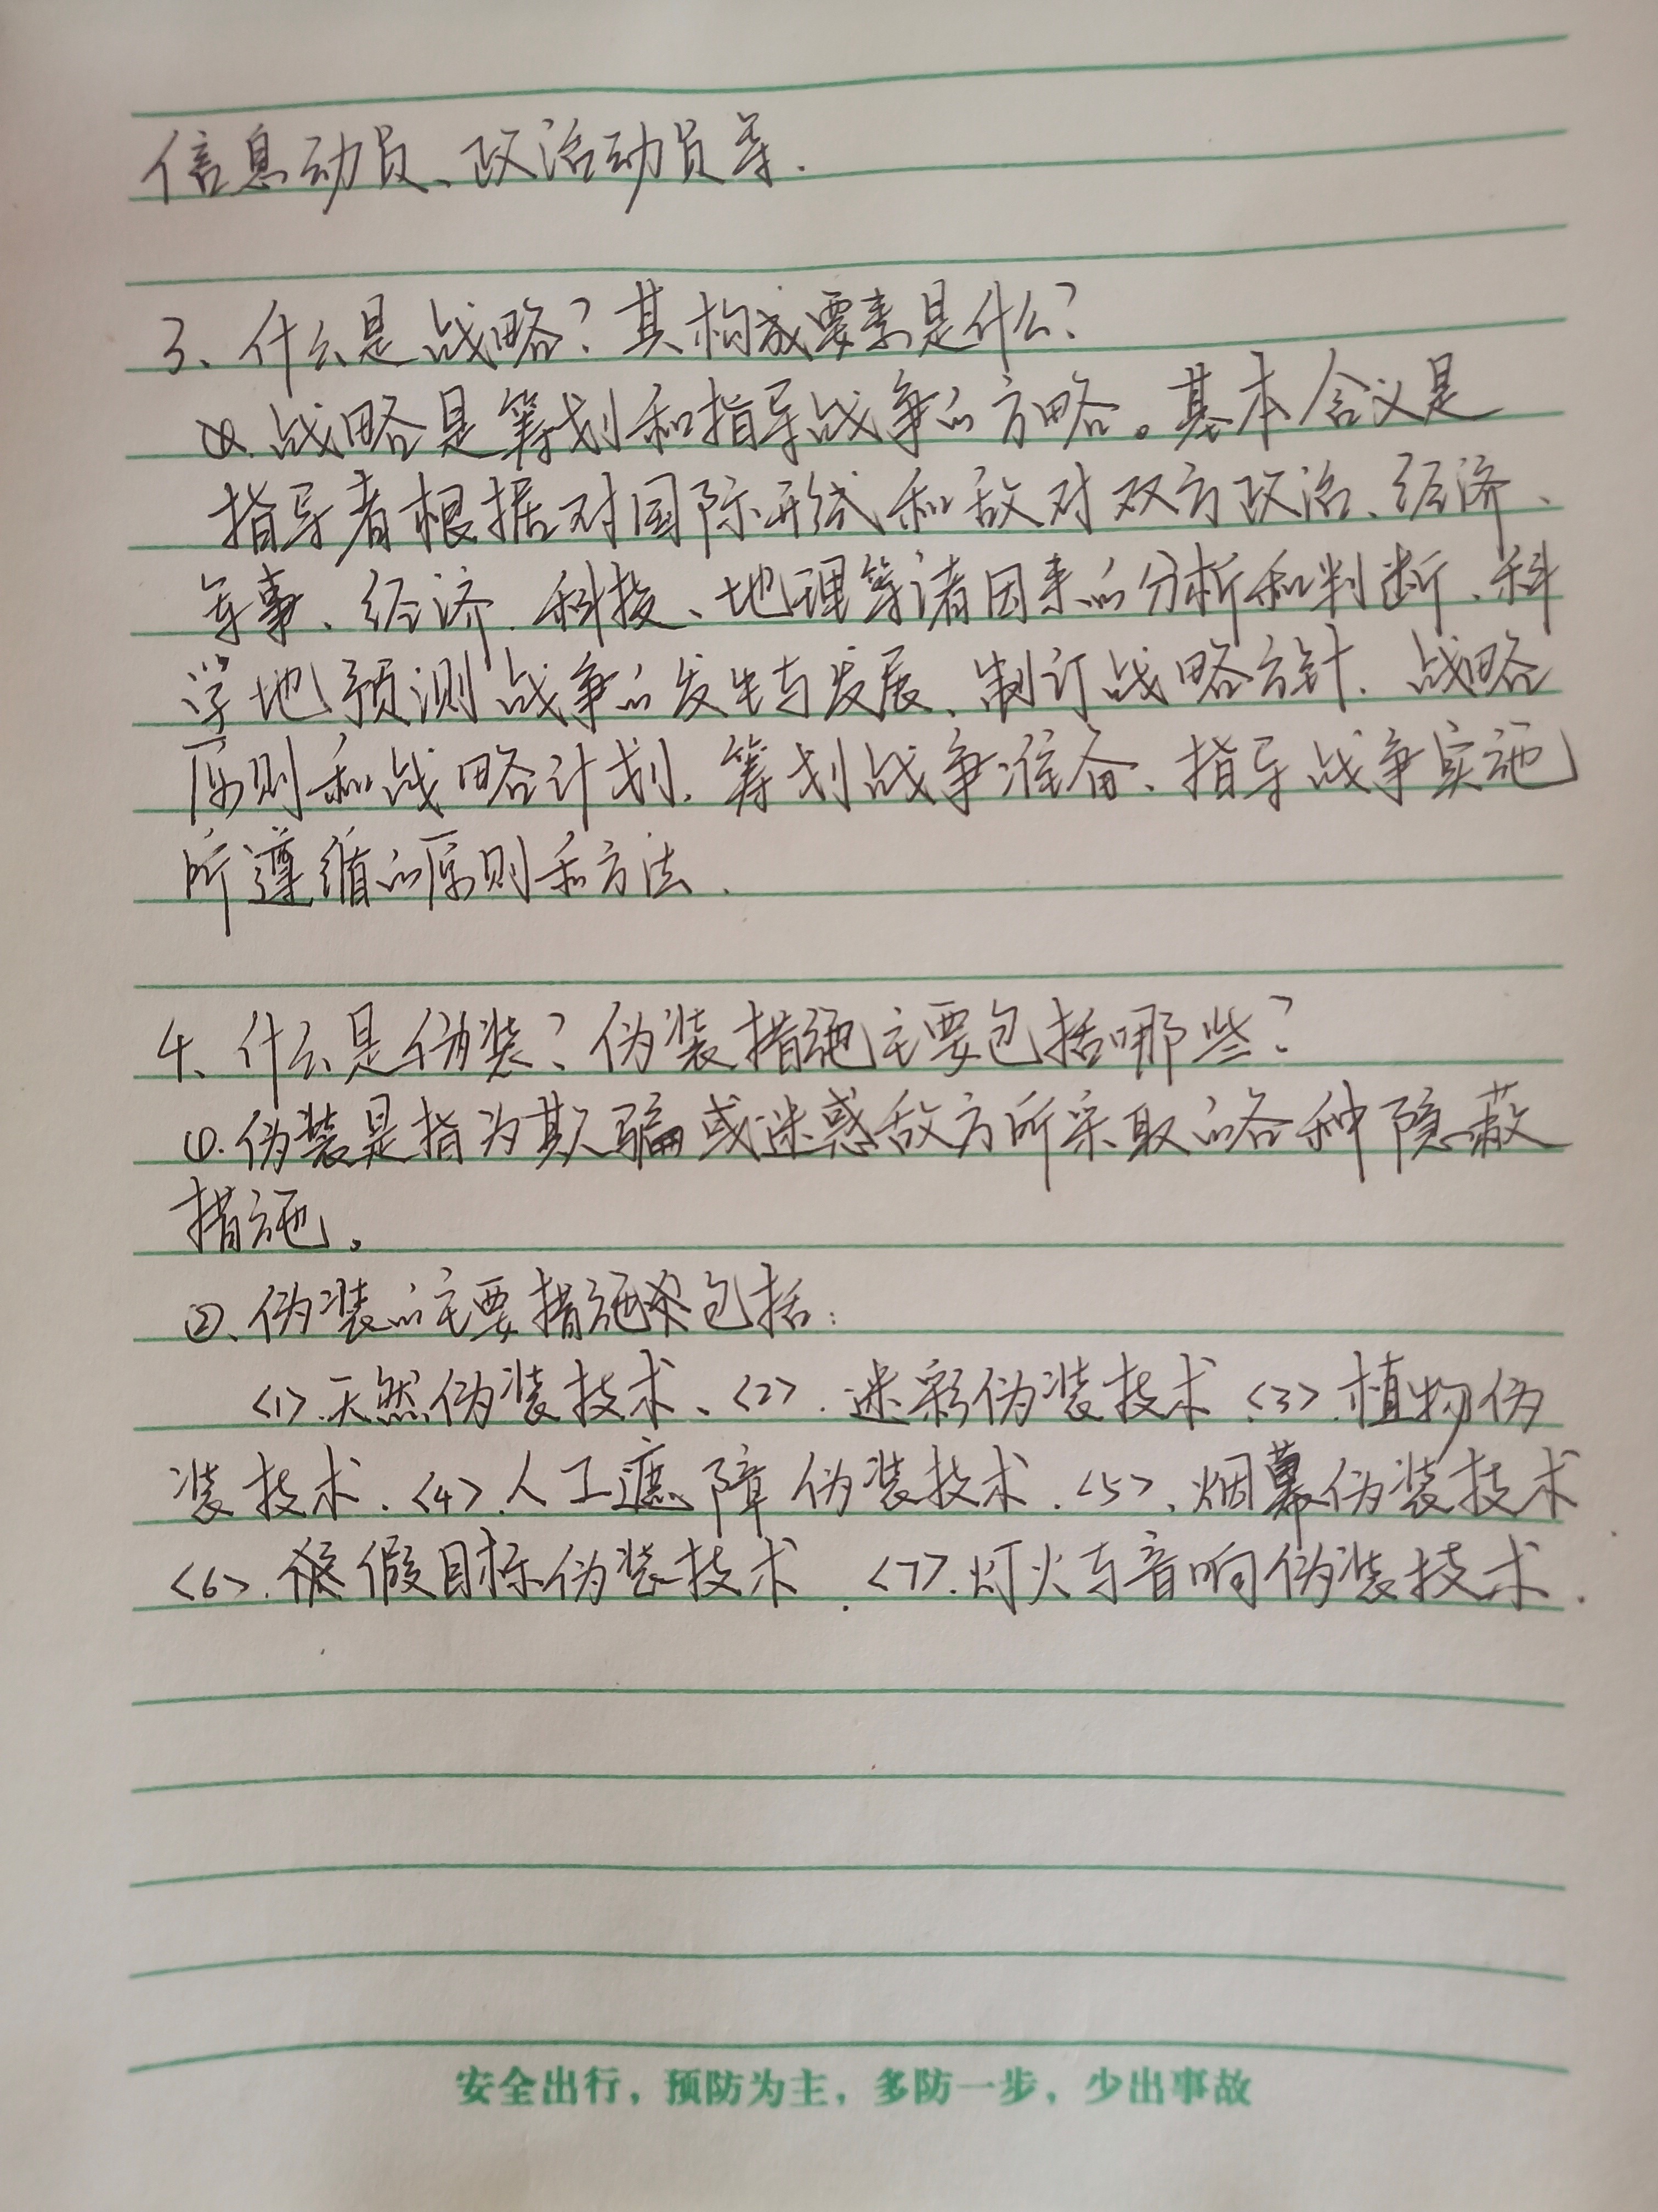 信息动员、政治动员等.
3、什么是战略？其构成要素是什么？
战略是筹划和指导战争的方略。基本含义是
指导者根据对国际形式和敌对双方政治、经济、
军事、经济、科技、地理等诸因素的分析和判断、科
学地预测战争的发生与发展、制订战略方针、战略
原则和战略计划、筹划战争准备、指导战争实施
所遵循的原则和方法.
4、什么是伪装？伪装措施主要包括哪些？
①.伪装是指为欺骗或迷惑敌方所采取的各种隐蔽
措施。
②、伪装的主要措施包括：
<1>.天然伪装技术、<2>.迷彩伪装技术.<3>.植物伪
装技术.<4>.人工遮障伪装技术.<5>、烟幕伪装技术
<6>.假目标伪装技术.<7>.灯火与音响伪装技术.
安全出行，预防为主，多防一步，少出事故